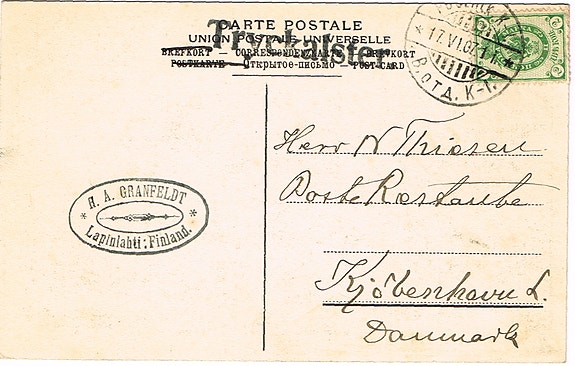 CARTE POSTALE
UNION POSTALE UNIVERSELLE
Tryckalster.
BREFKORT — CORRESPONDENZKARTE — BREVKORT
POSTKARTE — Открытое-письмо — POST-CARD
17.VI.07
В. ОТД. К-Г.
Herr N Thiesen
Poste Restante
H. A. GRANFELDT
Lapinlahti; Finland.
Kjöbenhavn L.
Danmark